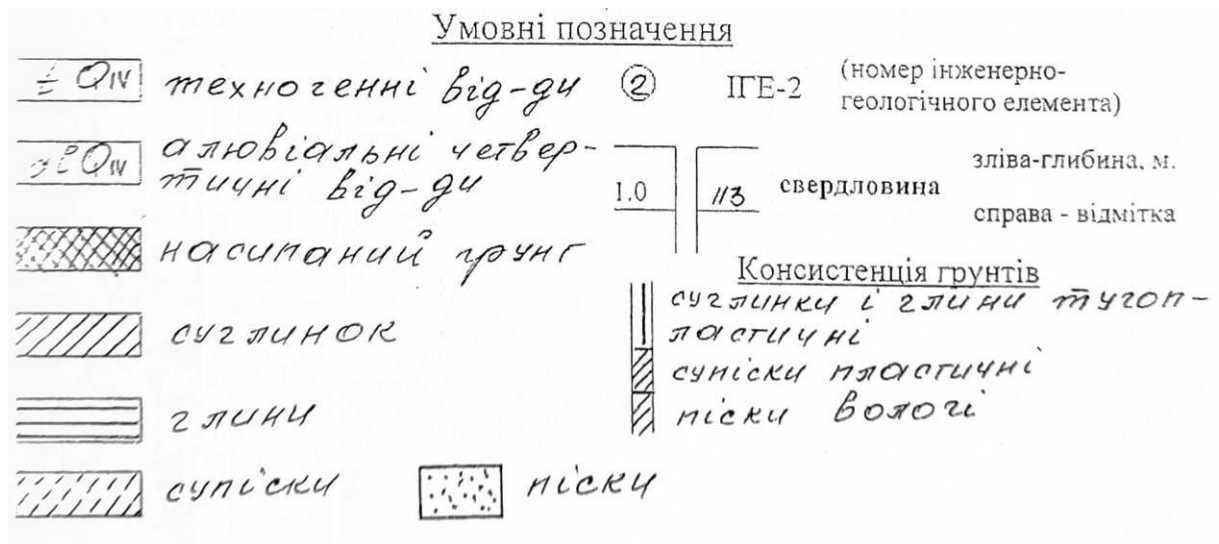 Умовні позначення
t QIV техногенні від-ди
② ІГЕ-2 (номер інженерно-
геологічного елемента)
QIV алювіальні четвер-
тичні від-ди
1.0 113 свердловина
зліва-глибина, м.
справа - відмітка
насипаний грунт
суглинок
глини
супіски
піски
Консистенція грунтів
суглинки і глини тугоп-
ластичні
супіски пластичні
піски вологі